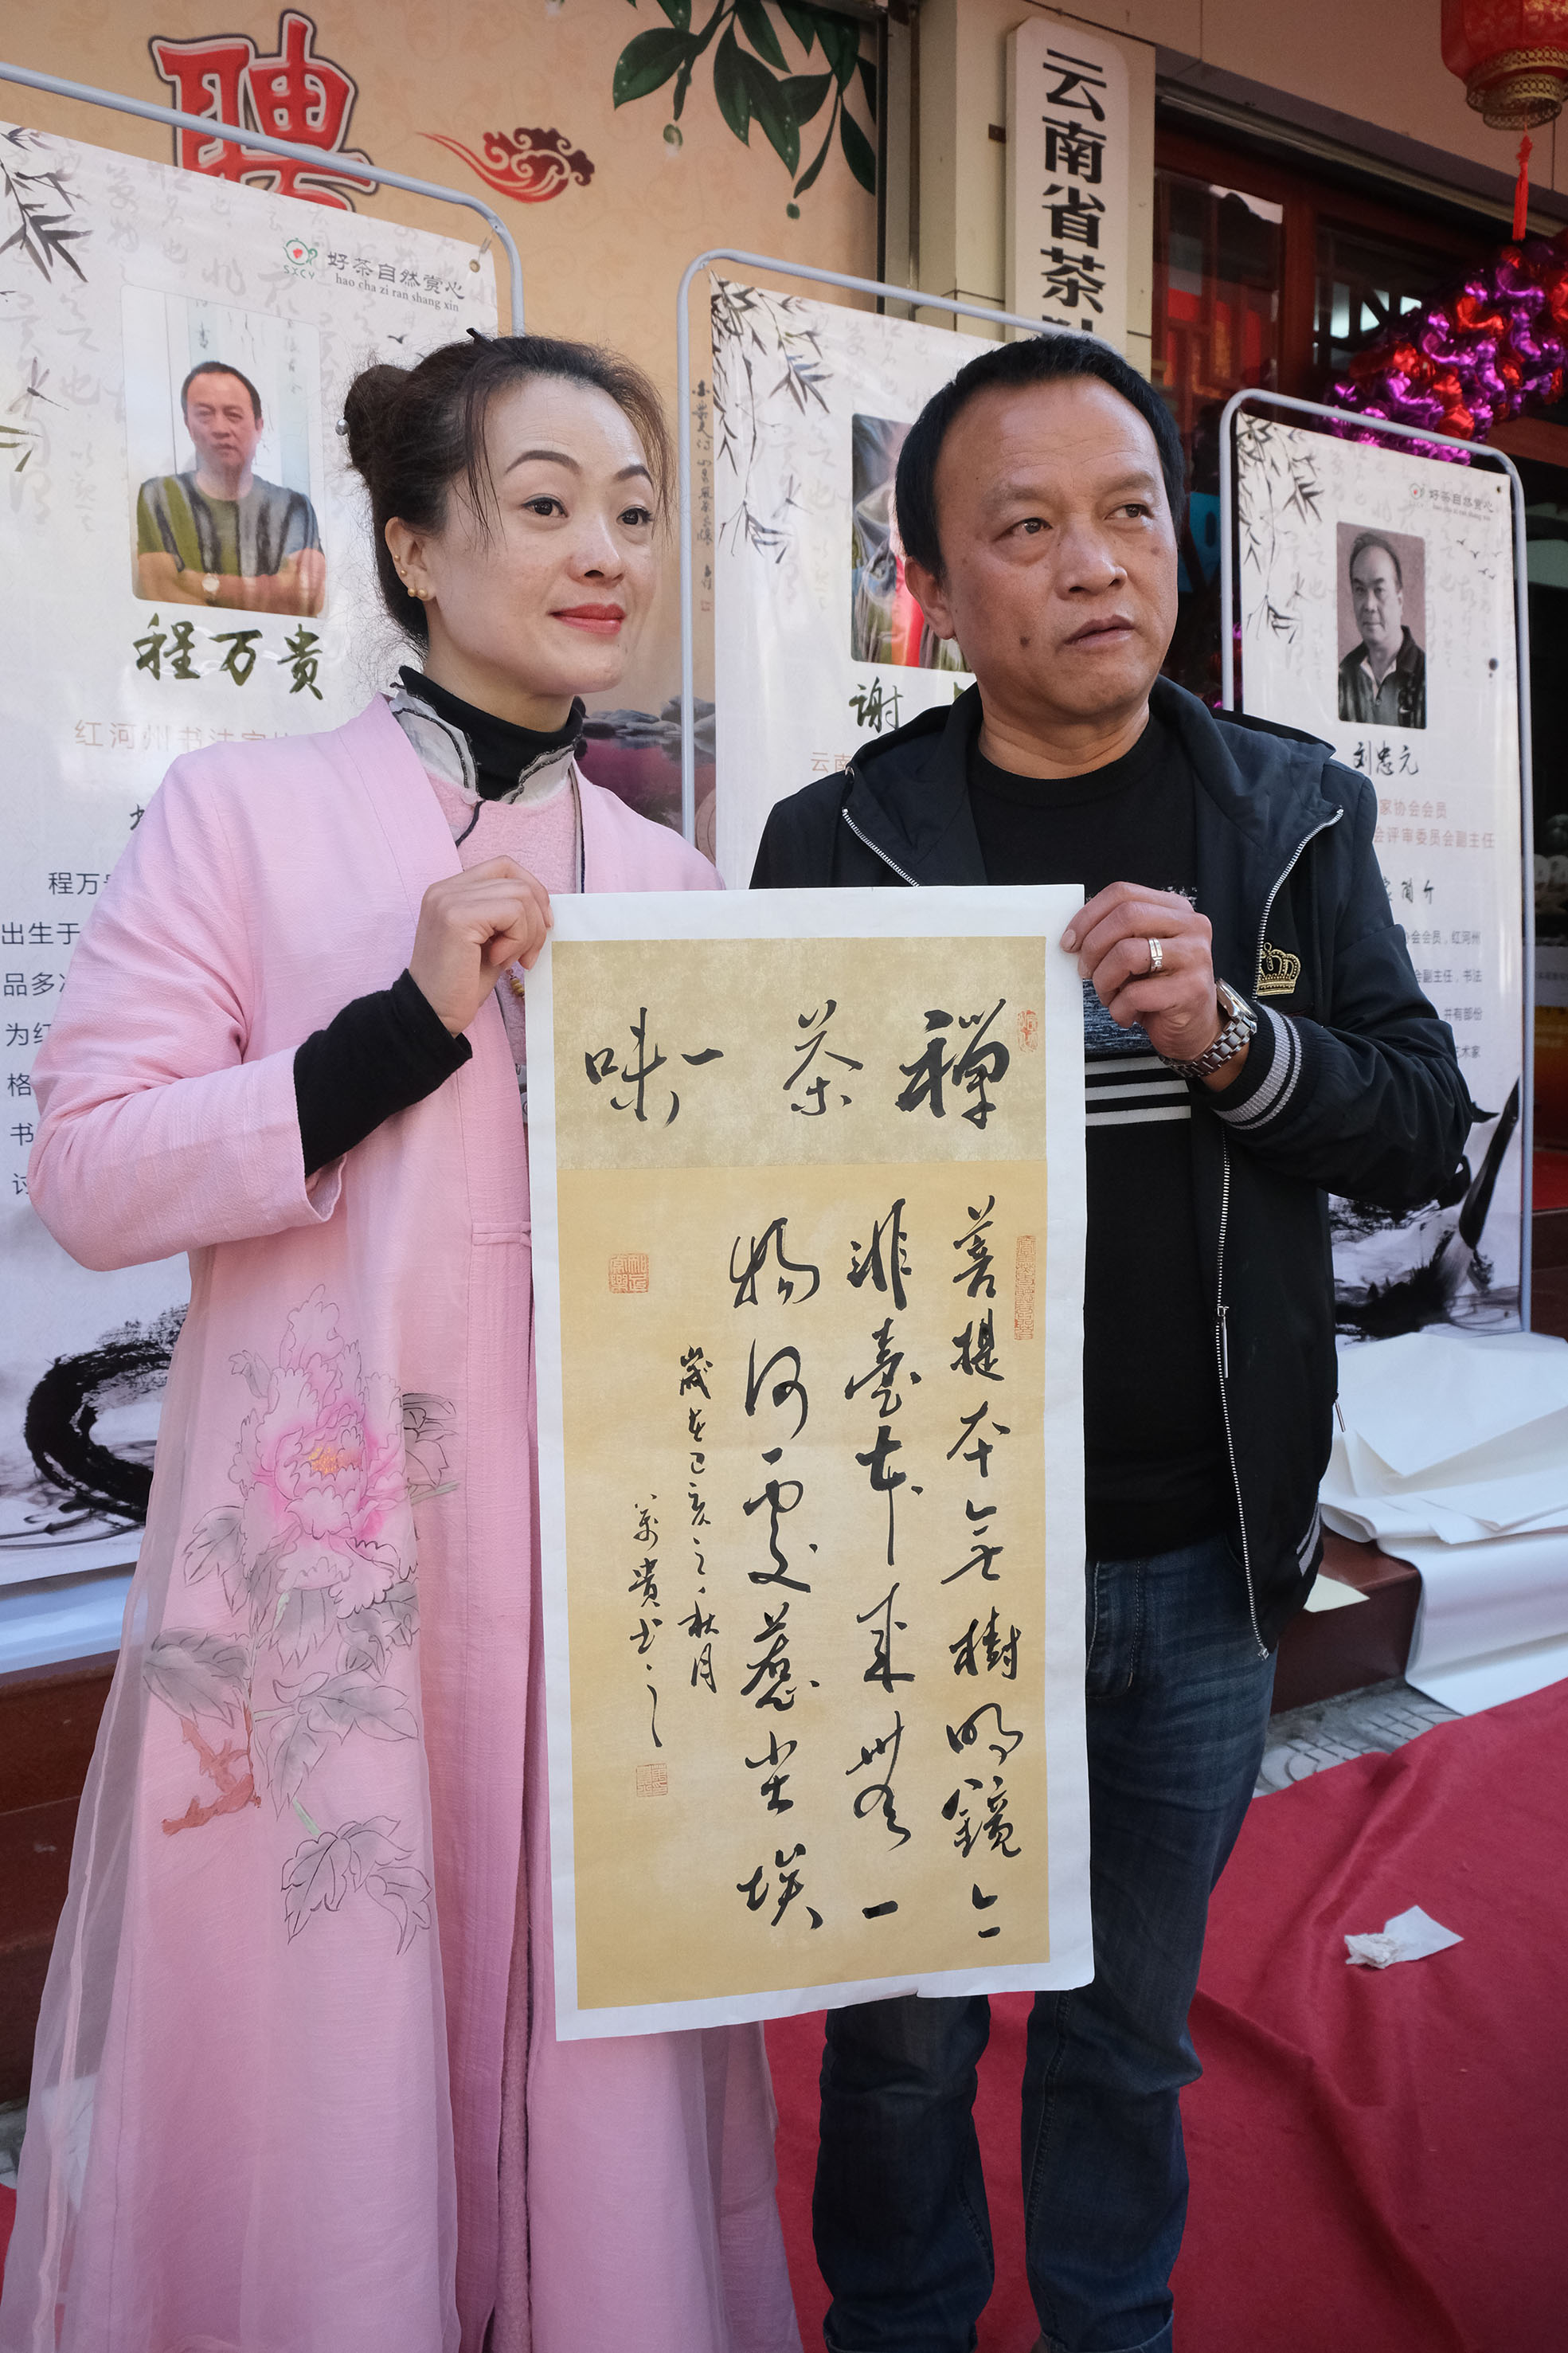 聘
云南省茶
好茶自然赏心
hao cha zi ran shang xin
SXCY
程万贵
红河州书法家
程万贵
出生于
品多
为红
格
书
讨
谢
云南
好茶自然赏心
hao cha zi ran shang xin
刘忠元
家协会会员
会评审委员会副主任
家简介
协会会员，红河州
会副主任，书法
共有部份
艺术家
禪茶一味
菩提本無樹明鏡亦
非臺本来無一
物何處惹尘埃
歲在己亥之秋月
萬貴书